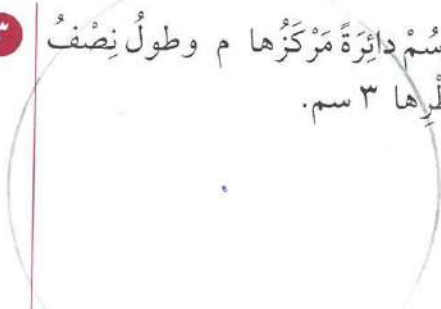 سُمْ دائِرَةً مَرْكَزُها م وطولُ نِصْفُ
ظْرِها ٣ سم.
٣